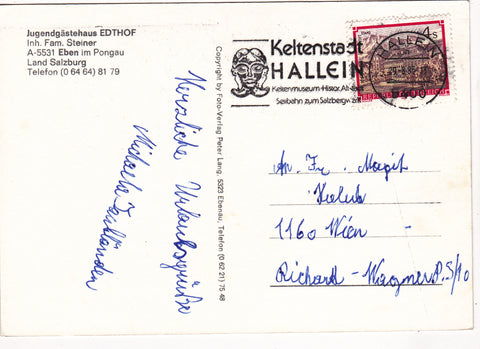 Jugendgästehaus EDTHOF
Inh. Fam. Steiner
A-5531 Eben im Pongau
Land Salzburg
Telefon (0 64 64) 81 79
Herzliche Urlaubsgrüße
Michaela
Copyright by Foto-Verlag Peter Lang, 5323 Ebenau, Telefon (0 62 21) 75 48
Keltenstadt
HALLEIN
Keltenmuseum·Histor. Altstadt
Seilbahn zum Salzbergwerk
4s
HALLEIN
5400
An Fr. Margit
Holub
1160 Wien
Richard-Wagner P. 5/10